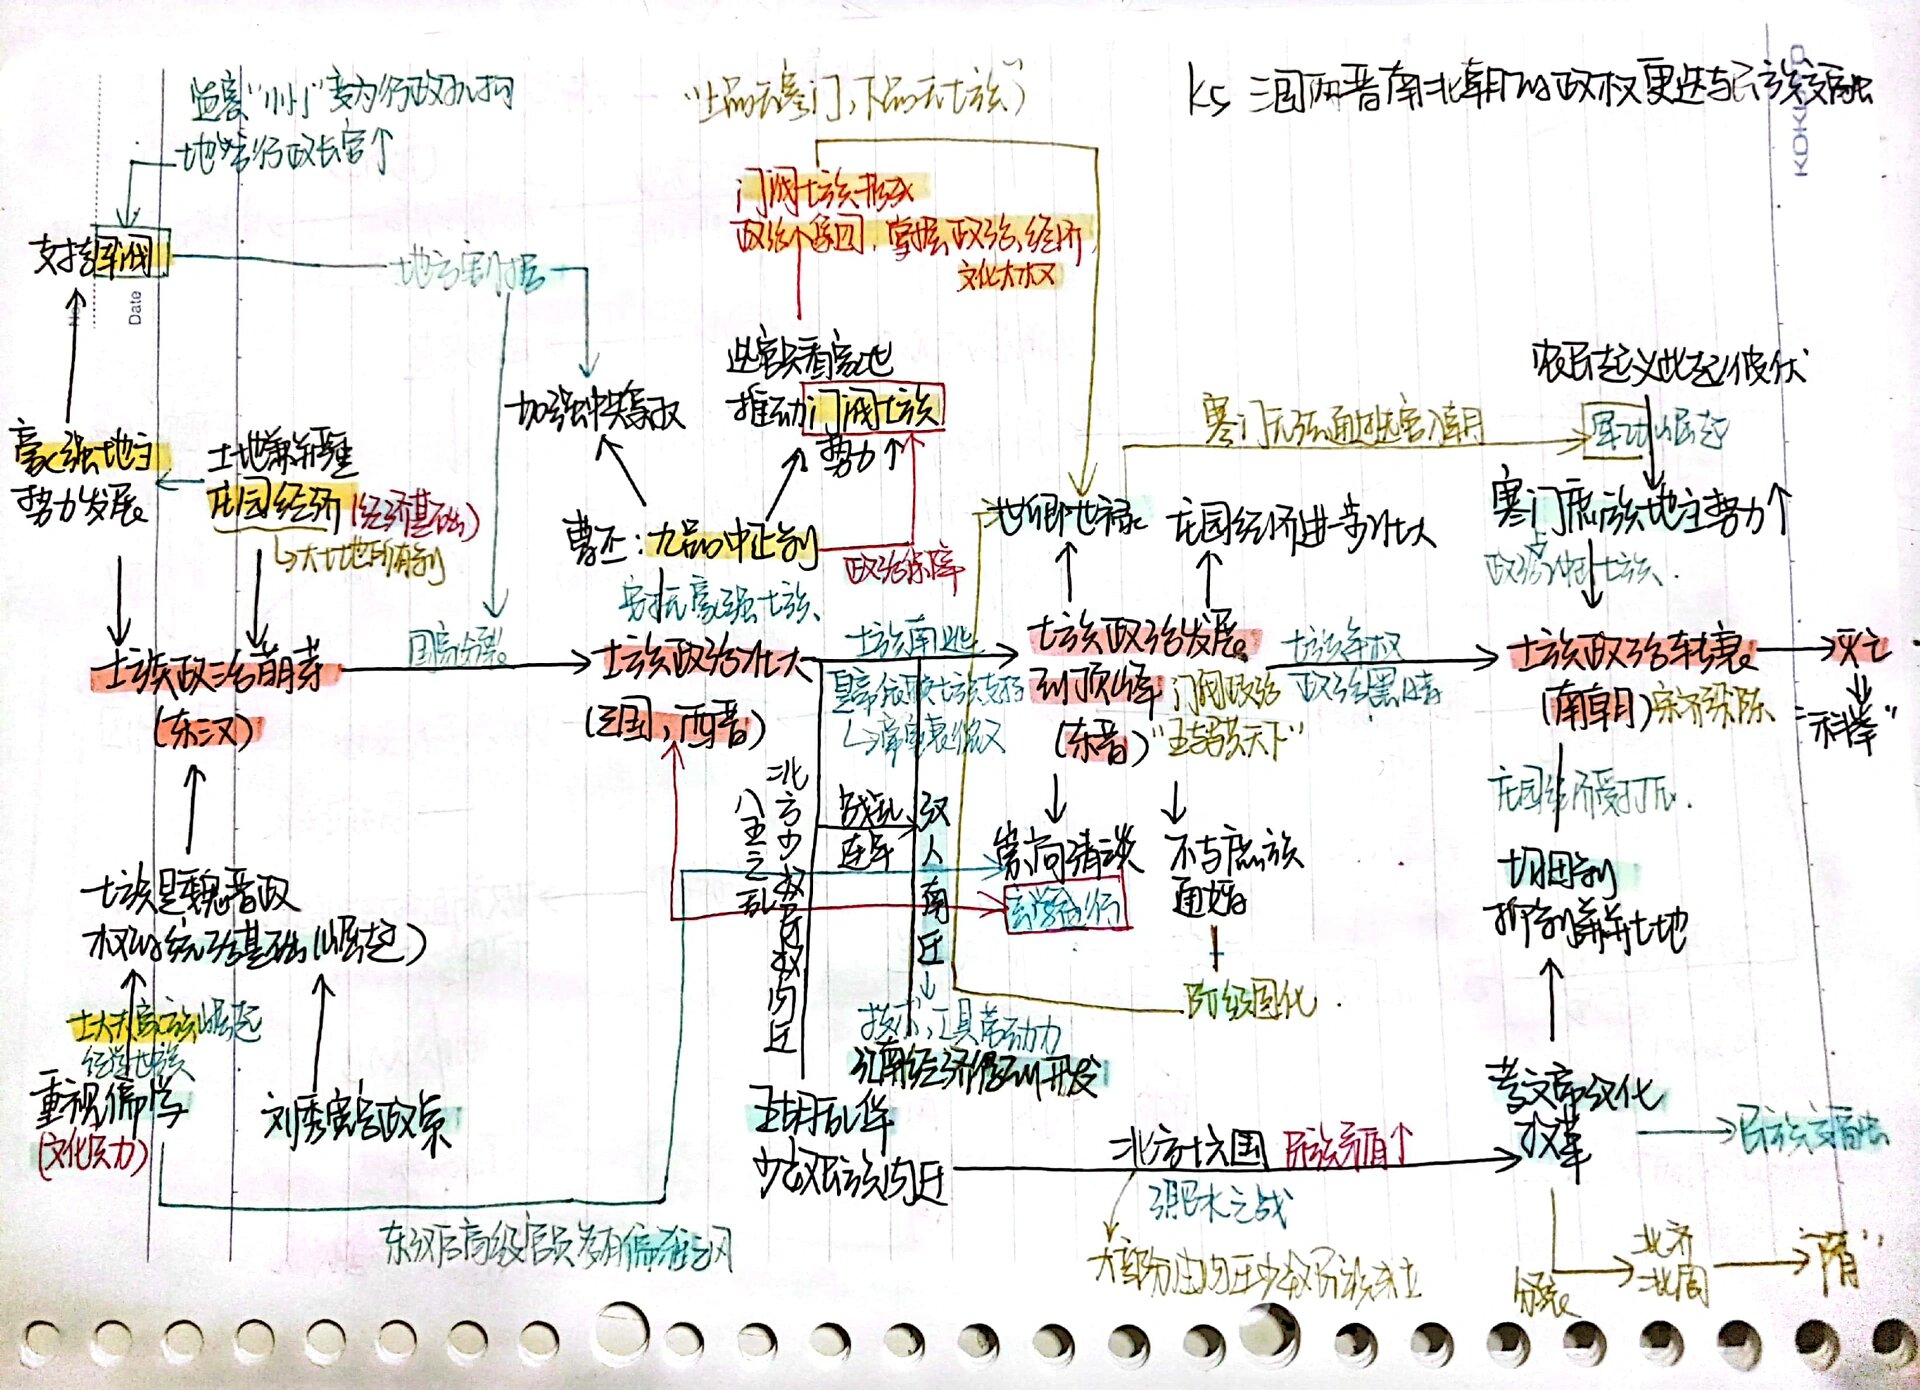 K5 三国两晋南北朝的政权更迭与民族交融
KOKUYO
监察“州”变为行政机构
地方行政长官↑
“上品无寒门,下品无士族”
门阀士族形成
政治小集团,掌握政治、经济,
文化大权
支持军阀
Date
地方割据
选官只看家世
推动门阀士族
势力↑
加强中央集权
农民起义此起彼伏
寒门无法通过选官入朝
军功崛起
豪强地主
势力发展
土地兼并严重
庄园经济(经济基础)
↳大土地所有制
曹丕:九品中正制
政治保障
世卿世禄
庄园经济进一步壮大
寒门庶族地主势力↑
政治冲击士族
安抚豪强士族
士族政治萌芽
(东汉)
国家分裂
士族政治壮大
(三国,西晋)
士族南逃
皇帝依赖士族支持
↳皇室衰微
士族政治发展
到顶峰
(东晋)
门阀政治
“王与马共天下”
士族争权
政治黑暗
士族政治衰
(南朝)宋齐梁陈
灭亡
“科举”
八王之乱
北方少数民族内迁
战乱
连年
汉人南迁
崇尚清谈
玄学盛行
不与庶族
通婚
阶级固化
庄园经济受打压
均田制
抑制兼并土地
士族是魏晋政
权的统治基础(崛起)
士大夫家族崛起
经学世族
重视儒学
(文化实力)
刘秀宽容政策
技术,工具劳动力
江南经济得到开发
五胡乱华
少数民族内迁
北方十六国
民族矛盾↑
淝水之战
大部分由内迁少数民族建立
孝文帝汉化
改革
民族交融
分裂
北齐
北周
“隋”
东汉后高级官员多有儒雅之风